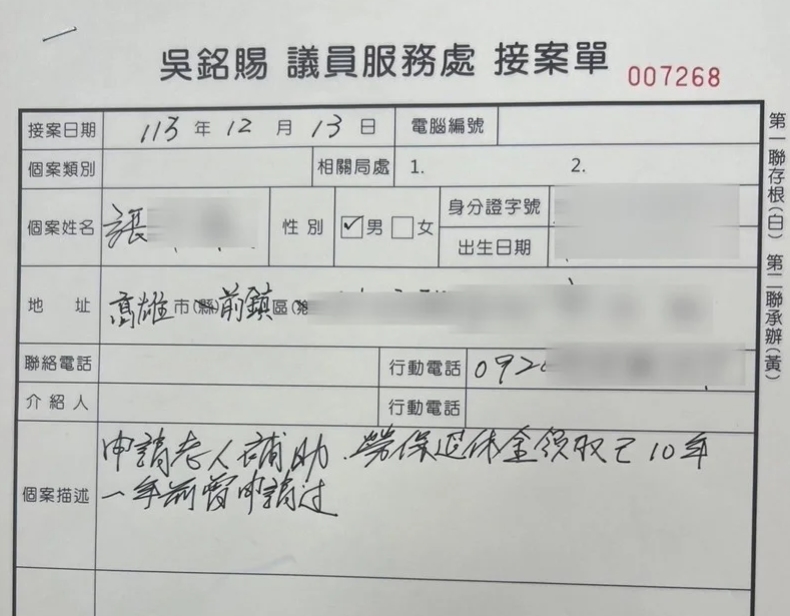 吳銘賜 議員服務處 接案單 007268
接案日期 113 年 12 月 13 日 電腦編號
個案類別 相關局處 1. 2.
個案姓名 張 性別 ✓男 □女 身分證字號
出生日期
地 址 高雄市(縣)前鎮區
聯絡電話 行動電話 092
介紹人 行動電話
個案描述 申請老人補助.勞保退休金領取已10年
一年前曾申請过
第一聯存根(白) 第二聯承辦(黃)